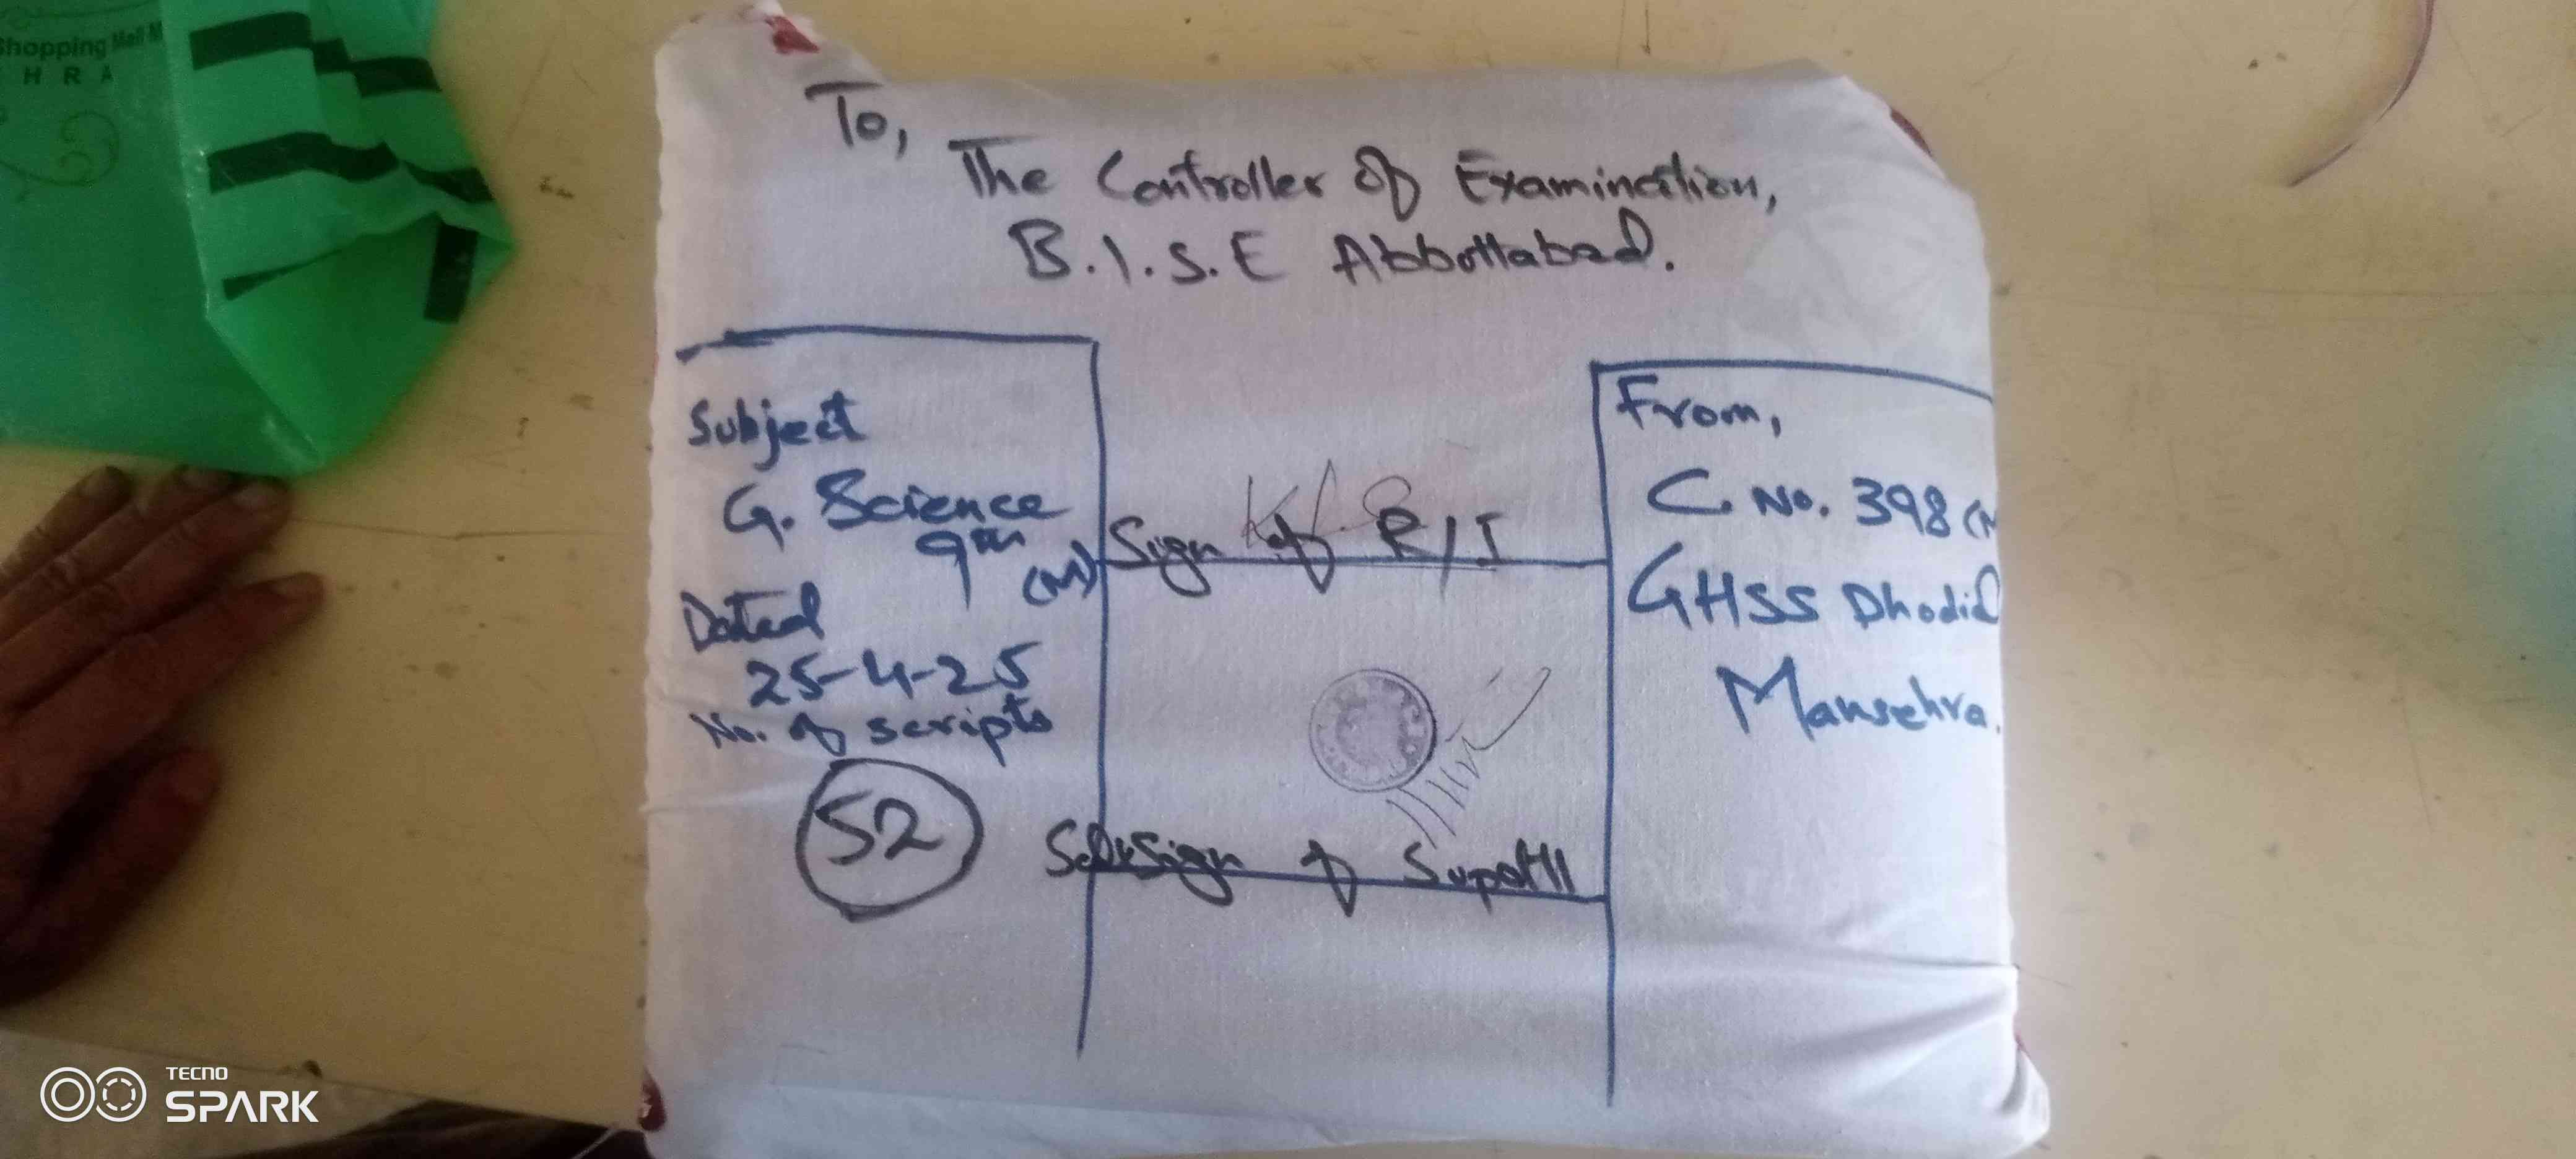 Shopping Mall M
H R A
To,
The Controller of Examination,
B.I.S.E Abbottabad.
Subject
G. Science
9th
(M)
Dated
25-4-25
No. of scripts
52
Sign of R/I
Sign of Supdtt
From,
C. No. 398 (M
GHSS Dhodial
Mansehra.
TECNO
SPARK